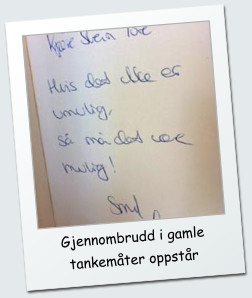 Kjære Svein Tore
Hvis det ikke er
umulig,
så må det være
mulig!
Gjennombrudd i gamle
tankemåter oppstår